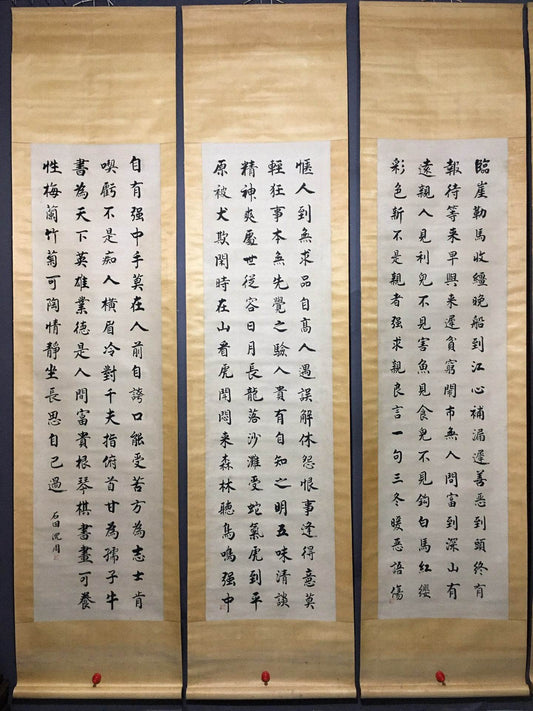 臨崖勒馬收韁晚船到江心補漏遲善惡到頭終有
報待等来早與来遲貧窮鬧市無人問富到深山有
遠親人見利兒不見害魚見食兒不見鉤白馬紅纓
彩色新不是親者强求親良言一句三冬暖惡語傷
惬人到無求品自髙人遇誤解休怨恨事逢得意莫
輕狂事本無先覺之驗人貴有自知之明五味清談
精神爽處世従容日月長龍落沙灘受蛇氣虎到平
原被犬欺閑時在山看虎鬥悶来森林聽鳥鳴强中
自有强中手莫在人前自誇口能受苦方為志士肯
喫虧不是痴人橫眉冷對千夫指俯首甘為孺子牛
書為天下英雄業德是人間富貴根琴棋書畫可養
性梅蘭竹菊可陶情靜坐長思自己過
石田沈周